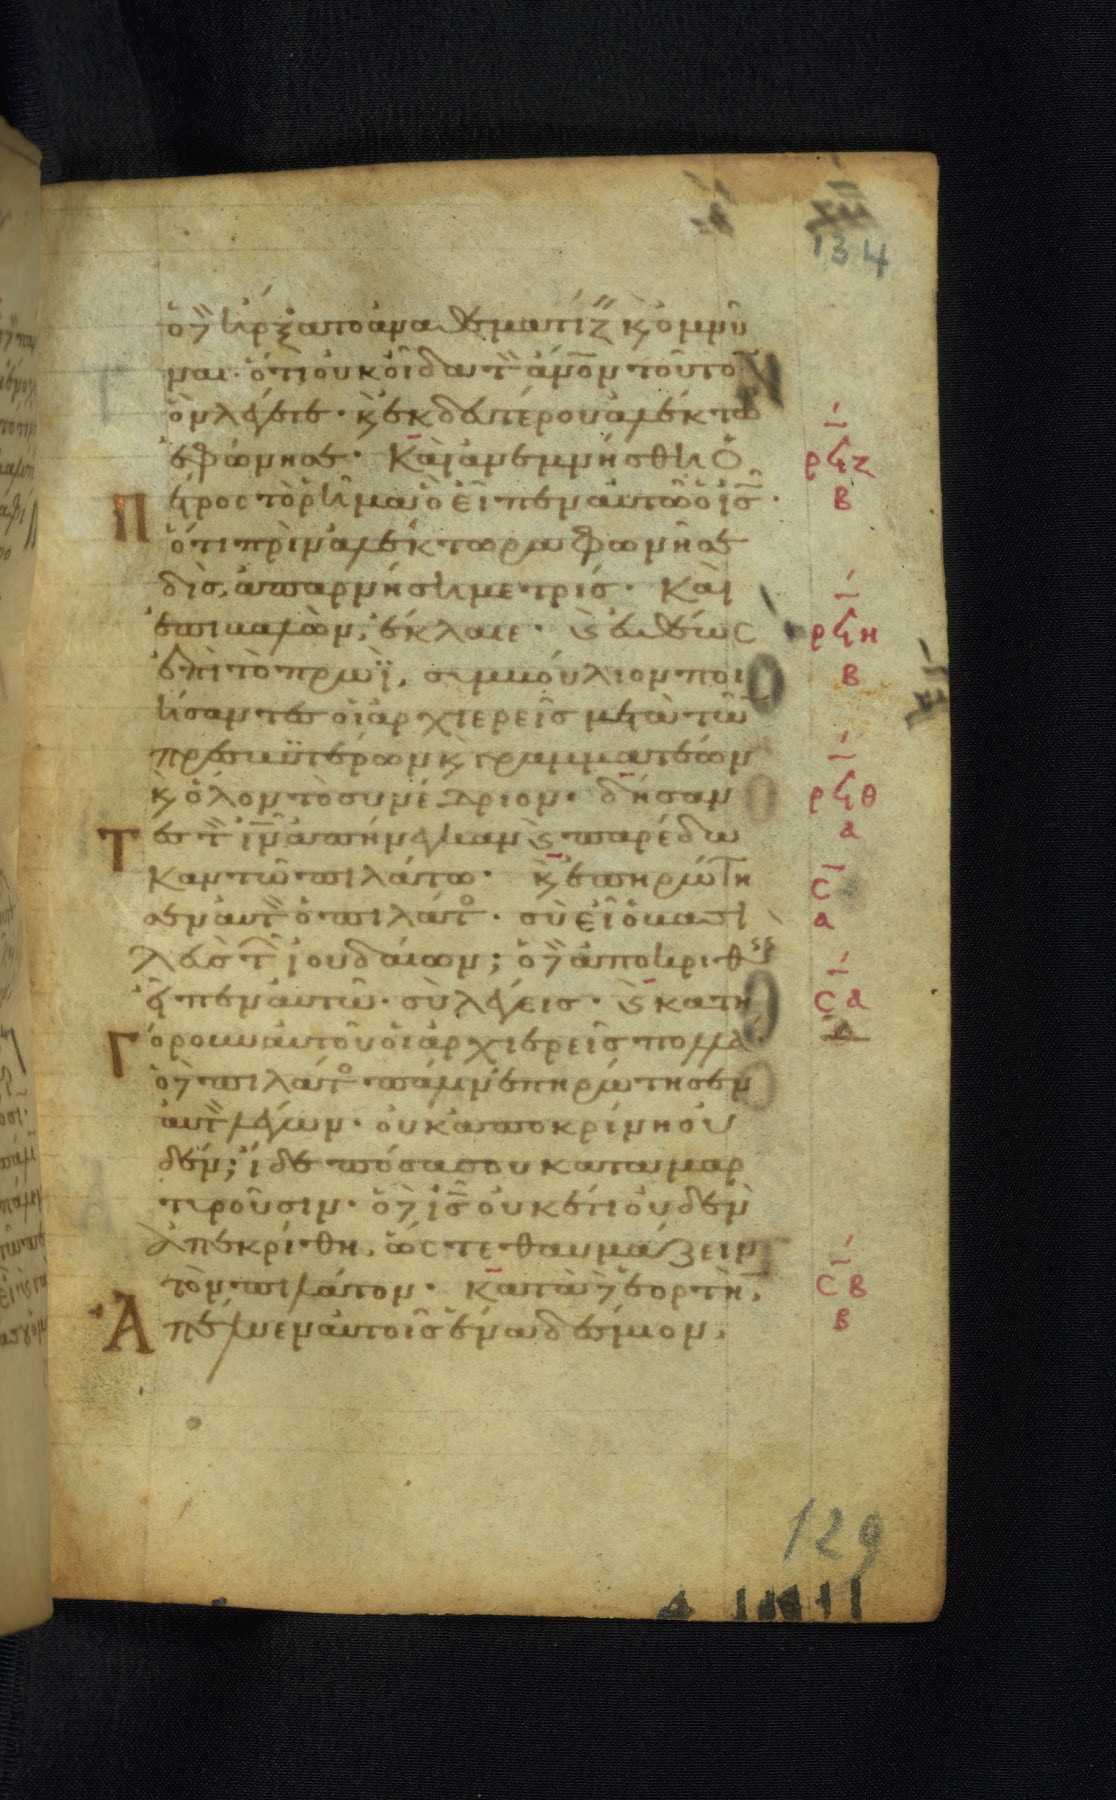 134
ὁ δὲ ἤρξατο ἀναθεματίζ κ ομνύ
ναι· ὅτι οὐκ οἶδα τ ἀνον τοῦτο
ὃν λέγετε· κ ἐκ δευτέρου ἀλέκτω
ἐφώνησε· Καὶ ἀνεμνήσθη ὁ
ρϟζ
Πετρος τὸ ρῆμα ὃ εἶπεν αὐτῶ ὁ ις·
β
ὅτι πρὶν ἀλέκτωρα φωνῆσαι
δὶς, ἀπαρνήσημε τρίς· Καὶ
ἐπιβαλὼν, ἔκλαιε· κ εὐθέως
ρϟη
ἐπὶ τὸ πρωῒ, συμβούλιον ποι
β
ήσαντες οἱ ἀρχιερεῖς μετὰ τῶν
πρεσβυτέρων κ γραμματέων
κ ὅλον τὸ συνέδριον· δήσαν
ρϟθ
Τες τ ιν ἀπήνεγκαν κ παρέδω
α
Καν τῶ πιλάτω· κ ἐπηρώτη
C
σεν αὐτ ὁ πιλάτο· σὺ εἶ ὁ βασι
α
λεὺς τ ἰουδαίων; ὁ δὲ ἀποκριθεὶς
εἶπεν αὐτῶ· σὺ λέγεις· κ κατη
Cα
Γόρουν αὐτοῦ οἱ ἀρχιερεῖς πολλά·
δ
ὁ δὲ πιλάτο πάλιν ἐπηρώτησεν
αὐτ λέγων· οὐκ ἀποκρίνη οὐ
δέν; ἴδε πόσα σου καταμαρ
τυροῦσιν· ὁ δὲ ις οὐκέτι οὐδὲν
ἀπεκρίθη, ὥστε θαυμάζειν
τὸν πιλάτον· κατὰ δὲ ἑορτὴν,
Cβ
Ἀπέλυεν αὐτοῖς ἕνα δέσμιον,
β
129